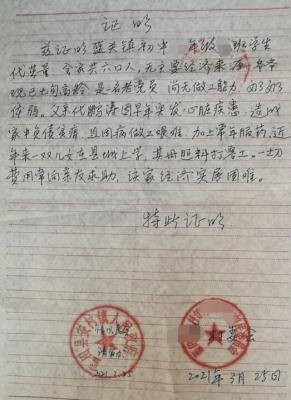 证明
兹证明蓝关镇初中 年级 班学生
代 全家共六口人，无主要经济来源 爷爷
现已七旬高龄是一名老党员 尚无做工能力 奶奶
体弱，父亲代鹏涛因早年突发心脏疾患，造成
家中负债累累，且因病做工艰难，加上常年服药，近
年来一双儿女在县城上学，其母照料打零工，一切
费用常向亲友求助，该家经济实属困难。
特此证明
情况属实
村委会
2021.3.25
2021年3月25日